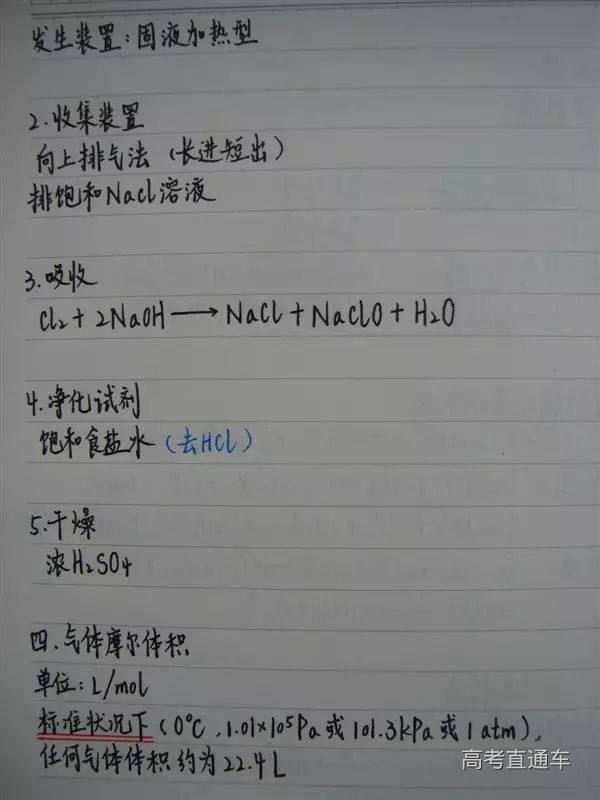 发生装置：固液加热型
2.收集装置
向上排气法（长进短出）
排饱和NaCl溶液
3.吸收
Cl₂+2NaOH⟶NaCl+NaClO+H₂O
4.净化试剂
饱和食盐水（去HCl）
5.干燥
浓H₂SO₄
四.气体摩尔体积
单位：L/mol
标准状况下（0℃，1.01×10⁵Pa或101.3kPa或1atm），
任何气体体积约为22.4L
高考直通车